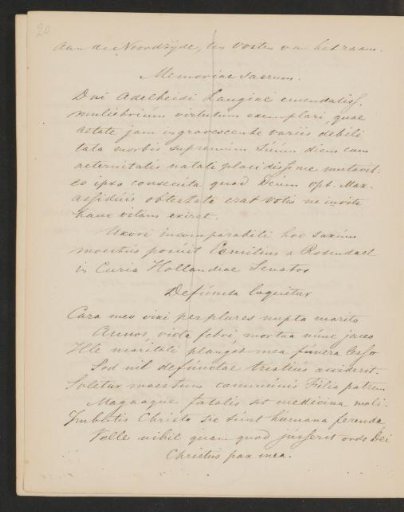 20
Aan de Noordzyde, ten Oosten van het raam.
Memoriae sacrum.
Dae Adelheidi Langiae emendatiss.
muliebrium virtutum exemplari, quae
aetate jam ingravescente variis debili
tata morbis supremum suum diem cum
aeternitatis natali placidissime mutavit
eo ipso consecuta quod Deum opt. Max.
assiduis obtestata erat votis ne invita
hanc vitam exiret.
Uxori incomparabili hoc saxum
moestus posuit Cornelius a Rosendael
in Curia Hollandiae Senator
Defuncta loquitur
Cara meo vixi per plures nupta marito
Annos, viola febri mortua nunc jaceo
Ille maritali plangat mea funera
Sed nil defunctae tristius acciderit.
Soletur moestum communis Filia patrem
Magnaque fatalis sit medicina mali
Imbutis Christo sic sunt humana ferenda
Velle nihil quam quod jusserit Dei
Christus pax mea.